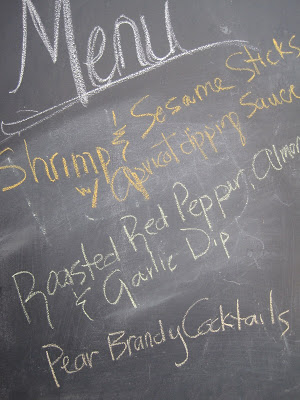 Menu
Shrimp & Sesame Sticks
w/ Apricot dipping sauce
Roasted Red Peppur, Almon
& Garlic Dip
Pear Brandy Cocktails